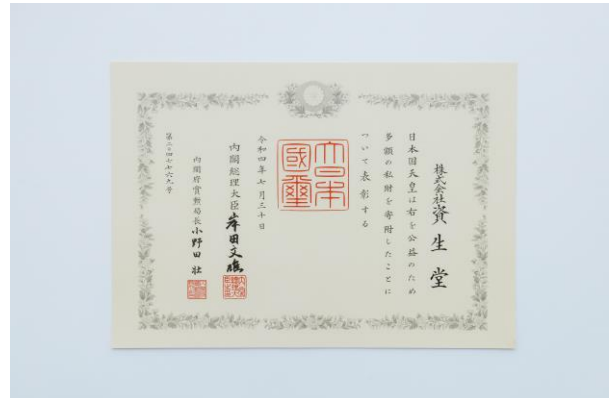 株式会社資生堂
日本国天皇は右を公益のため
多額の私財を寄附したことに
ついて表彰する
大日本國璽
令和四年七月三十日
内閣総理大臣 岸田文雄
内閣府賞勲局長 小野田壮